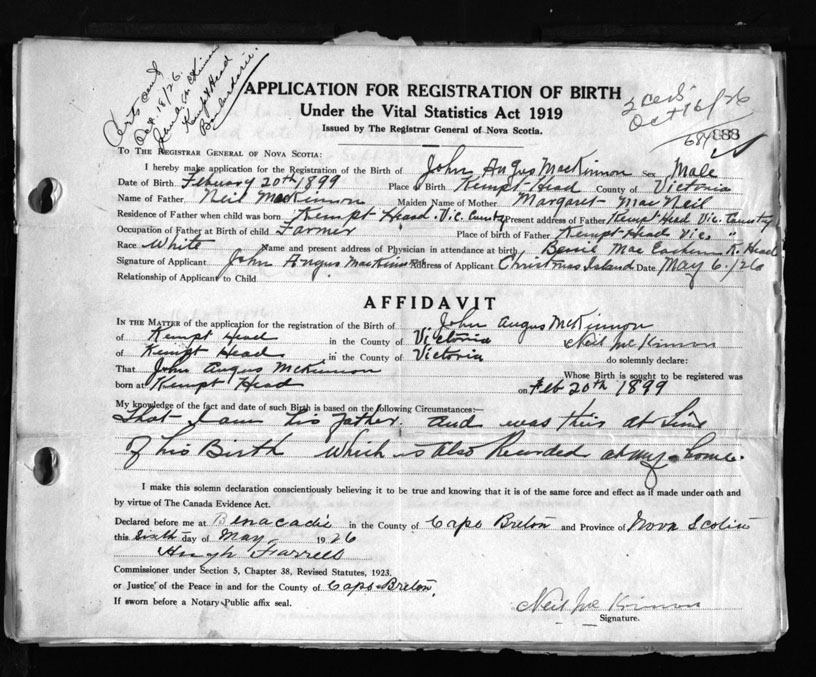 Certs sent
Oct. 18/26.
Kempt Head
Boularderie.
3 certs
Oct 16/26
APPLICATION FOR REGISTRATION OF BIRTH
Under the Vital Statistics Act 1919
Issued by The Registrar General of Nova Scotia.
To The Registrar General of Nova Scotia:
I hereby make application for the Registration of the Birth of John Angus MacKinnon Sex Male
Date of Birth February 20th 1899 Place of Birth Kempt-Head County of Victoria
Name of Father Neil MacKinnon Maiden Name of Mother Margaret MacNeil
Residence of Father when child was born Kempt Head. Vic. County Present address of Father Kempt Head Vic. County
Occupation of Father at Birth of child Farmer Place of birth of Father Kempt-Head Vic. "
Race White Name and present address of Physician in attendance at birth Bessie Mac Eachern K. Head
Signature of Applicant John Angus MacKinnon Address of Applicant Christmas Island Date May 6./26
Relationship of Applicant to Child
AFFIDAVIT
In the Matter of the application for the registration of the Birth of John Angus McKinnon
of Kempt Head in the County of Victoria Neil McKinnon
of Kempt Head in the County of Victoria do solemnly declare:
That John Angus McKinnon Whose Birth is sought to be registered was
born at Kempt Head on Feb 20th 1899
My knowledge of the fact and date of such Birth is based on the following Circumstances:—
That I am his father and was their at time
of his Birth which is also Recorded at my home.
I make this solemn declaration conscientiously believing it to be true and knowing that it is of the same force and effect as if made under oath and
by virtue of The Canada Evidence Act.
Declared before me at Benacadie in the County of Cape Breton and Province of Nova Scotia
this Sixth day of May 1926
Hugh Farrell
Commissioner under Section 5, Chapter 38, Revised Statutes, 1923.
or Justice of the Peace in and for the County of Cape Breton.
If sworn before a Notary Public affix seal.
Neil McKinnon
Signature.